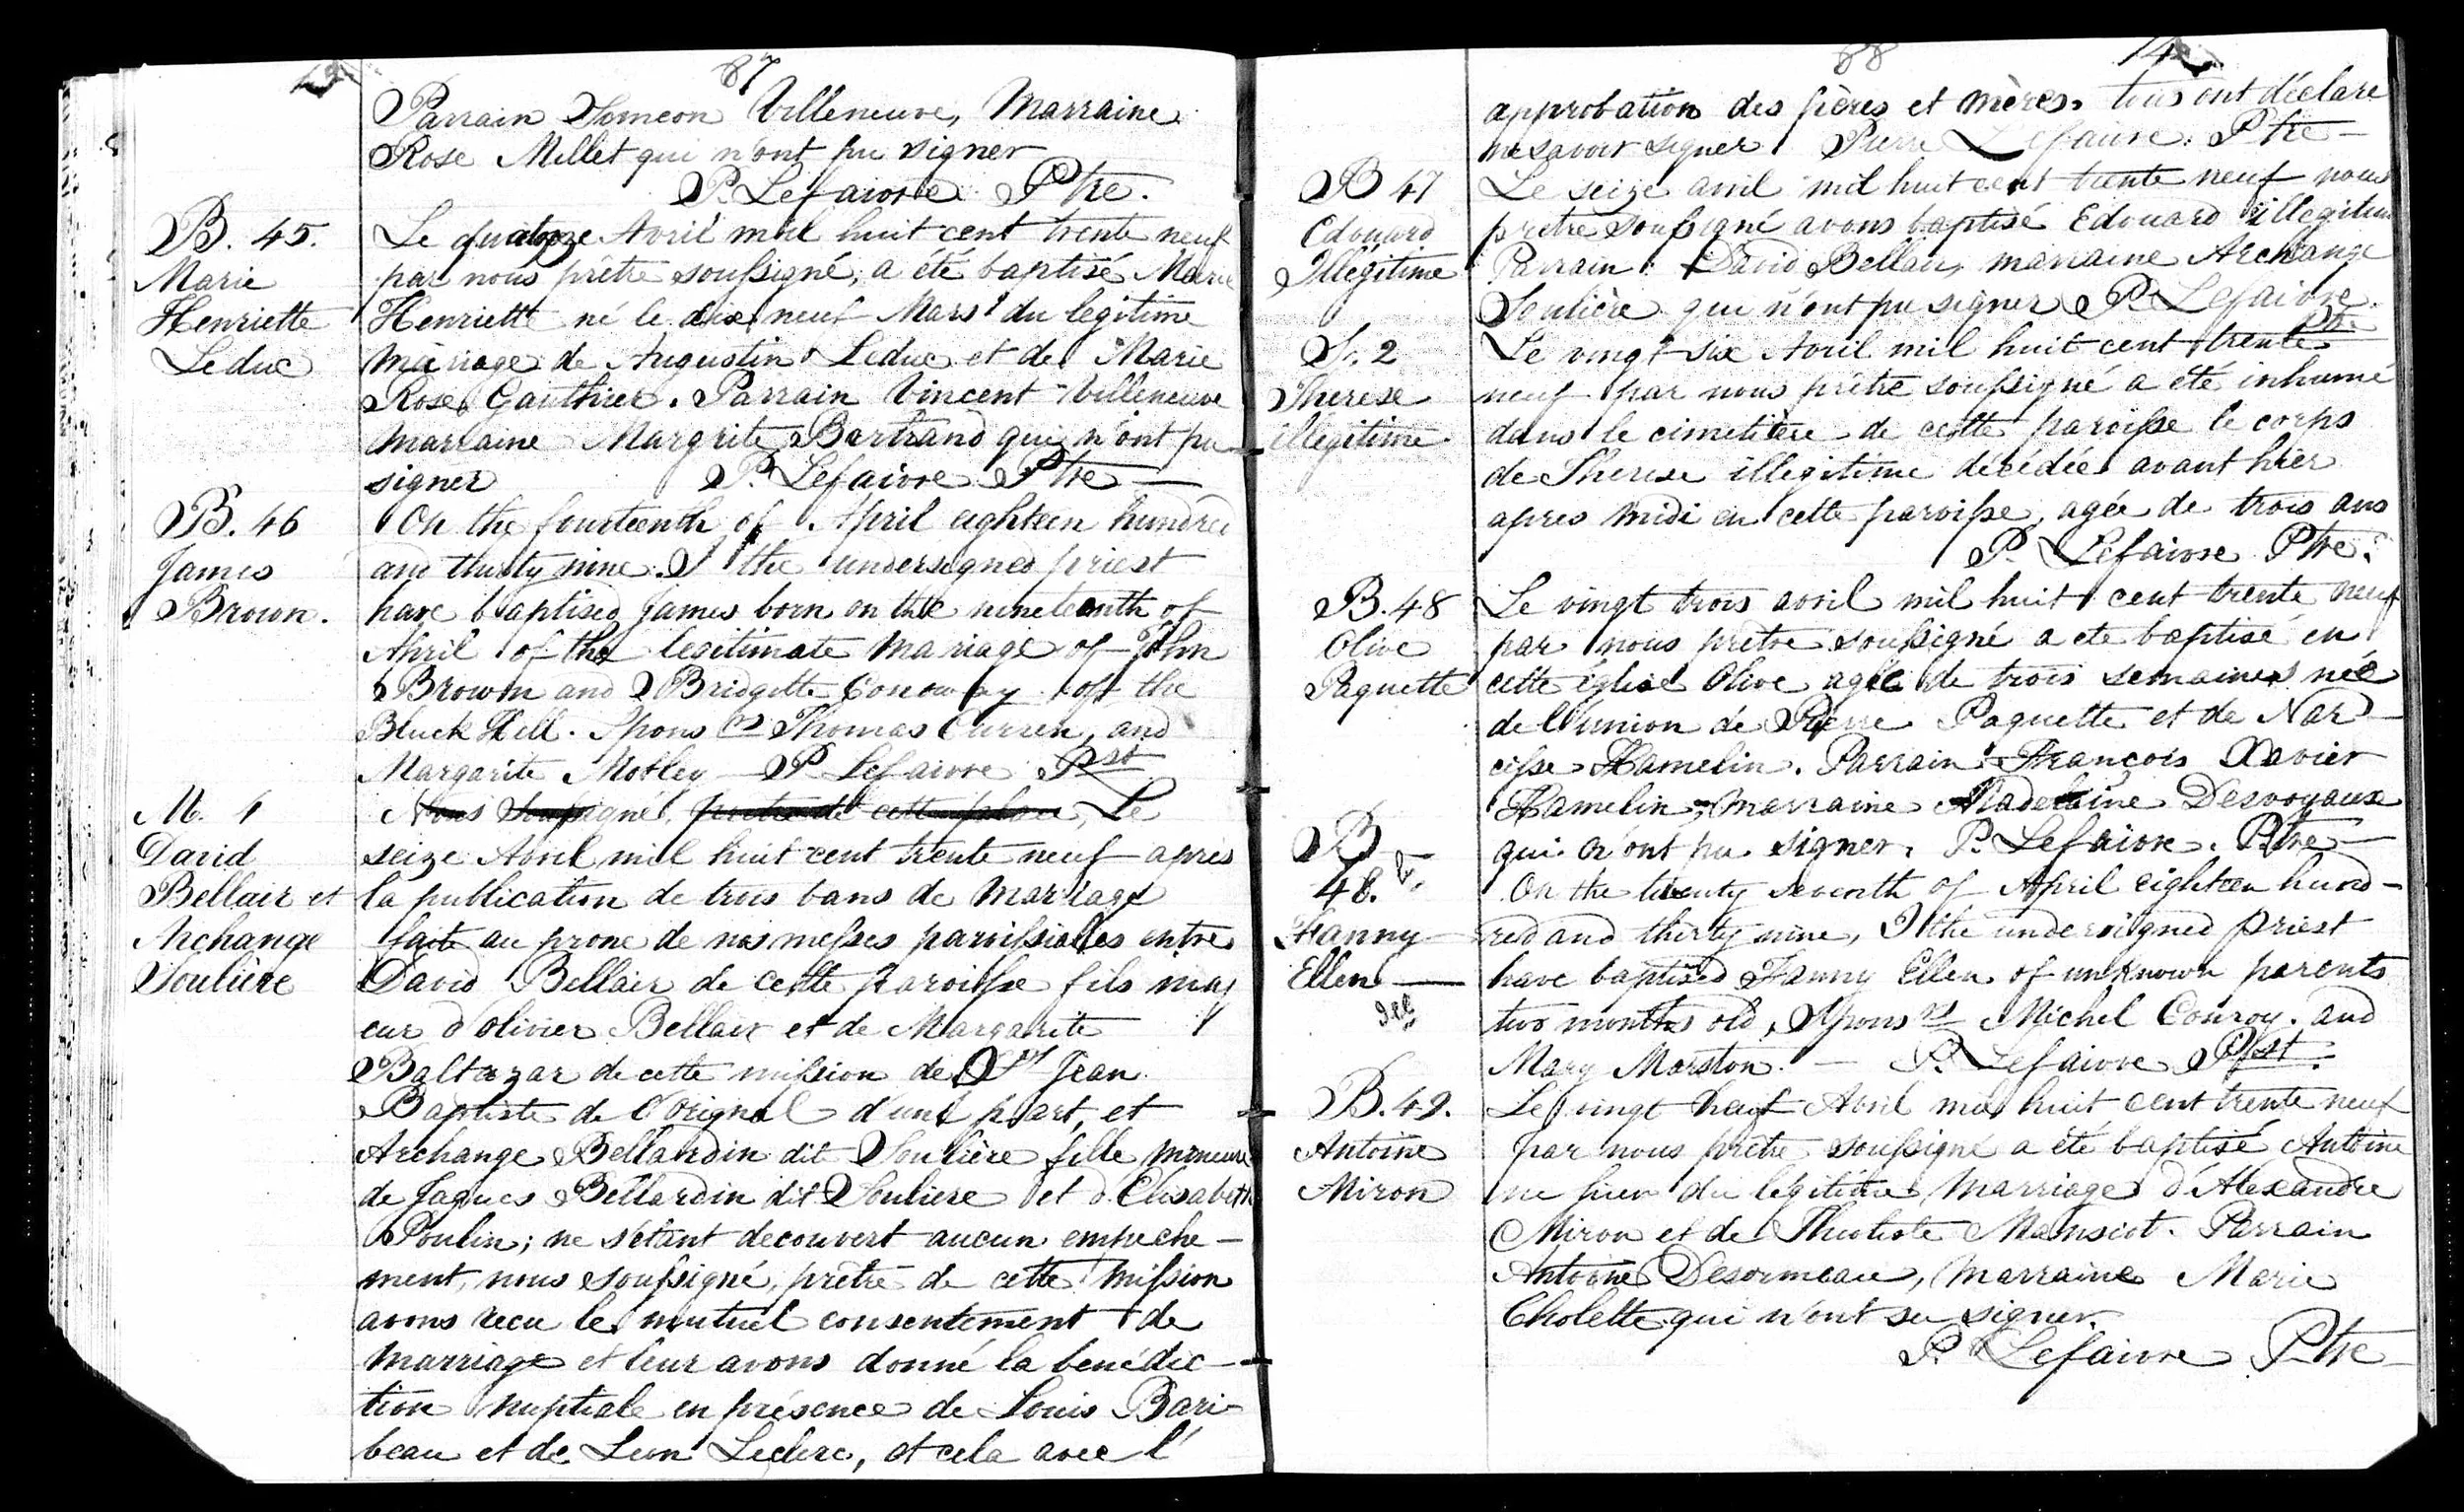 87
Parrain Simeon Villeneuve, Marraine
Rose Millet qui n'ont pu signer
P. Lefaivre Ptre.
B. 45.
Marie
Henriette
Leduc
Le quatorze Avril mil huit cent trente neuf
par nous prêtre soussigné, a été baptisé Marie
Henriette né le dix neuf Mars du legitime
mariage de Augustin Leduc et de Marie
Rose Gauthier. Parrain Vincent Villeneuve
marraine Margrite Bertrand qui n'ont pu
signer P. Lefaivre Ptre
B. 46
James
Brown.
On the fourteenth of April eighteen hundred
and thirty nine. I the undersigned priest
have baptised James born on the nineteenth of
April of the legitimate mariage of John
Brown and Bridgitte Conoway of the
Bluck Hill. Spons rs Thomas Curren, and
Margarite Mobley P. Lefaivre Pst
M. 4
David
Bellair et
Archange
Soulière
Nous Soussigné, pretre de cette place, Le
seize Avril mil huit cent trente neuf apres
la publication de trois bans de Mariage
faite au prone de nos messes paroissiales entre
David Bellair de cette paroisse fils maj
eur d'olivier Bellair et de Margarite
Baltazar de cette mission de St Jean
Baptiste de l'Orignal d'une part, et
Archange Bellardin dit Soulière fille mineure
de Jaques Bellardin dit Souliere et d'Elisabeth
Poulin; ne s'étant decouvert aucun empeche-
ment, nous soussigné, prêtre de cette Mission
avons recu le mutuel consentement de
Marriage et leur avons donné la bénédic-
tion nuptiale en présence de Louis Bari-
beau et de Leon Leclerc, et cela avec l'
88
14
approbation des pères et mères. tous ont déclare
ne savoir signer Pierre Lefaivre. Ptre
B 47
Edouard
Illégitime
Le seize avril mil huit cent trente neuf nous
prêtre soussigné avons baptisé Edouard illegitime
Parrain: David Bellair, marraine Archange
Soulière qui n'ont pu signer P. Lefaivre
Ptre
S. 2
Therese
illegitime
Le vingt six Avril mil huit cent trente
neuf par nous prêtre soussigné a été inhumé
dans le cimetière de cette paroisse le corps
de Therese illegitime décédée avant hier
apres midi en cette paroisse, agée de trois ans
P. Lefaivre Ptre.
B. 48
Olive
Paquette
Le vingt trois avril mil huit cent trente neuf
par nous prêtre soussigné a ete baptisé en
cette église Olive agée de trois semaines née
de l'union de Pierre Paquette et de Nar-
cisse Hamelin. Parrain François Xavier
Hamelin, marraine Madeleine Desvoyaux
qui n'ont pu signer. P. Lefaivre. Ptre
B
48.
Fanny
Ellen
On the twenty seventh of April eighteen hund-
red and thirty nine, I the undersigned priest
have baptised Fanny Ellen of unknown parents
two months old, Spons rs Michel Conroy. and
Mary Morston. P. Lefaivre Pst.
B. 49.
Antoine
Miron
Le vingt neuf Avril mil huit cent trente neuf
par nous prêtre soussigné a été baptisé Antoine
ne hier du legitime Marriage d'Alexandre
Miron et de Theotiste. Parrain
Antoine Desormeau, Marraine Marie
Cholette qui n'ont su signer.
P. Lefaivre Ptre